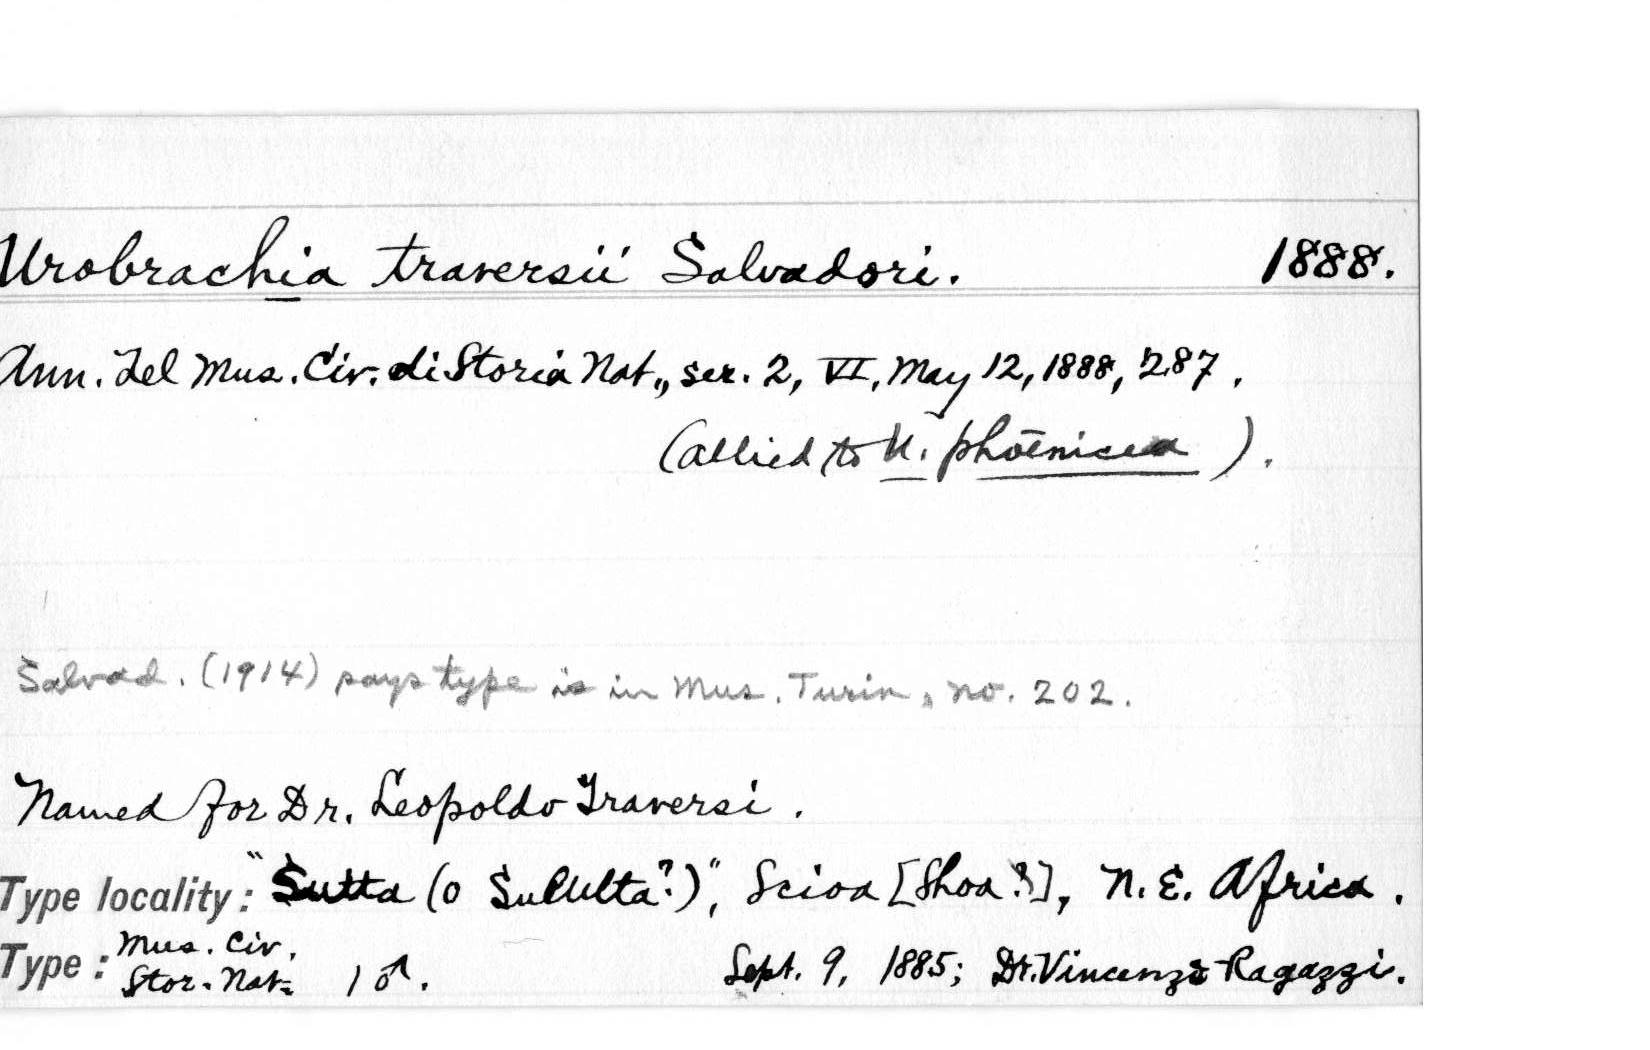 Urobrachia traversii Salvadori. 1888.
Ann. del Mus. Civ. di Storia Nat., ser. 2, VI, May 12, 1888, 287.
(allied to U. phoenicea).
Salvad. (1914) says type is in Mus. Turin, no. 202.
Named for Dr. Leopoldo Traversi.
Type locality: "Sutta (o Sululta?)", Scioa [Shoa?], N.E. Africa.
Type: Mus. Civ. Stor. Nat. 1 ♂. Sept. 9, 1885; Dr. Vincenzo Ragazzi.